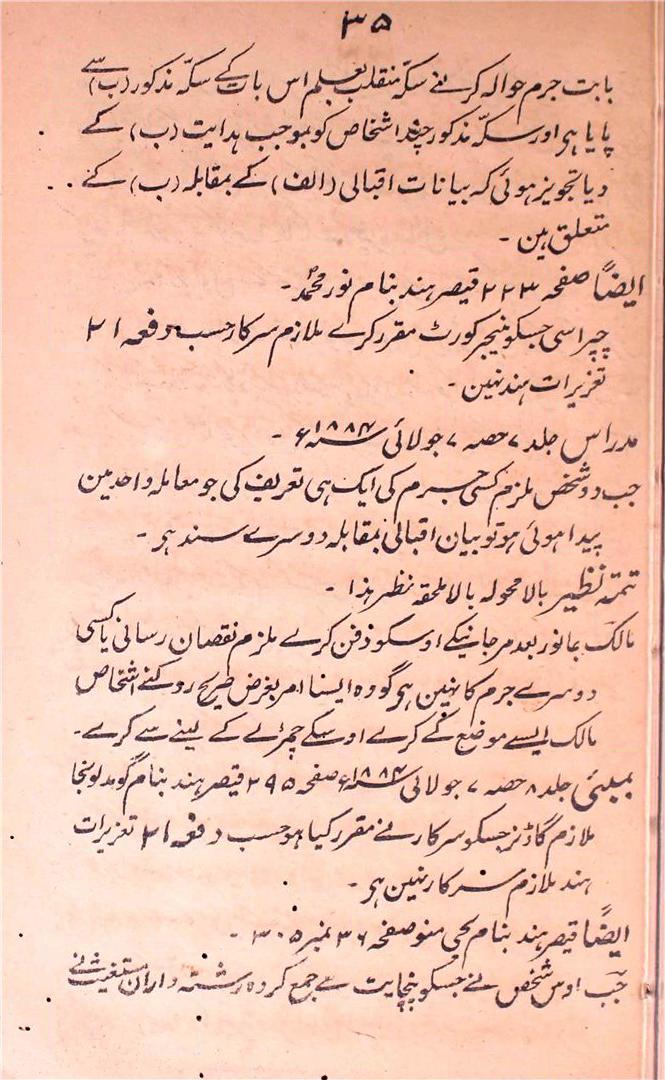 ۳۵
بابت جرم حوالہ کرنے سکہ منقلب بعلم اس بات کے سکہ مذکور (ب) سے
پایا ہر اور سکہ مذکور چند اشخاص کو بموجب ہدایت (ب) کے
دیا تجویز ہوئی کہ بیانات اقبالی (الف) کے بمقابلہ (ب) کے
متعلق ہین ۔
ایضاً صفحہ ۲۲۳ قیصر ہند بنام نور محمد ۔
چپراسی جسکو منیجر کورٹ مقرر کرے ملازم سرکار حسب دفعہ ۲۱
تعزیرات ہند نہین ۔
مدراس جلد ۷ حصہ ۷ جولائی ۱۸۸۴؁ء ۔
جب دو شخص ملزم کسی جرم کی ایک ہی تعریف کی جو معاملہ واحد مین
پیدا ہوئی ہو تو بیان اقبالی بمقابلہ دوسرے سند ہر ۔
تتمہ نظیر بالا محولہ بالا ملحقہ نظر ہذا ۔
مالک جانور بعد مر جانیکے اوسکو دفن کرے ملزم نقصان رسانی یا کسی
دوسرے جرم کا نہین ہر گو وہ ایسا امر بغرض صریح روکنے اشخاص
مالک ایسے موضع کے کرے اوسکے چمڑے کے لینے سے کرے ۔
بمبئی جلد ۸ حصہ ۷ جولائی ۱۸۸۴؁ء صفحہ ۲۹۵ قیصر ہند بنام
ملازم گاڈنر جسکو سرکار نے مقرر کیا ہو حسب دفعہ ۲۱ تعزیرات
ہند ملازم سرکار نہین ہر ۔
ایضاً قیصر ہند بنام صفحہ ۳۶ نمبر ۳۰۵ ۔
جب اوس شخص نے جسکو پنچایت نے جمع کردہ رشتہ داران مستغیث نے